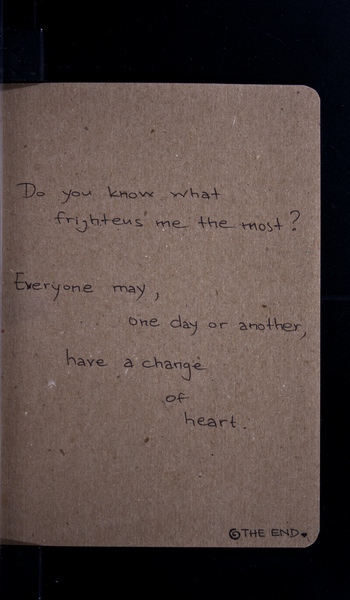 Do you know what
frightens' me the most?
Everyone may,
one day or another,
have a change
of
heart.
©THE END♥